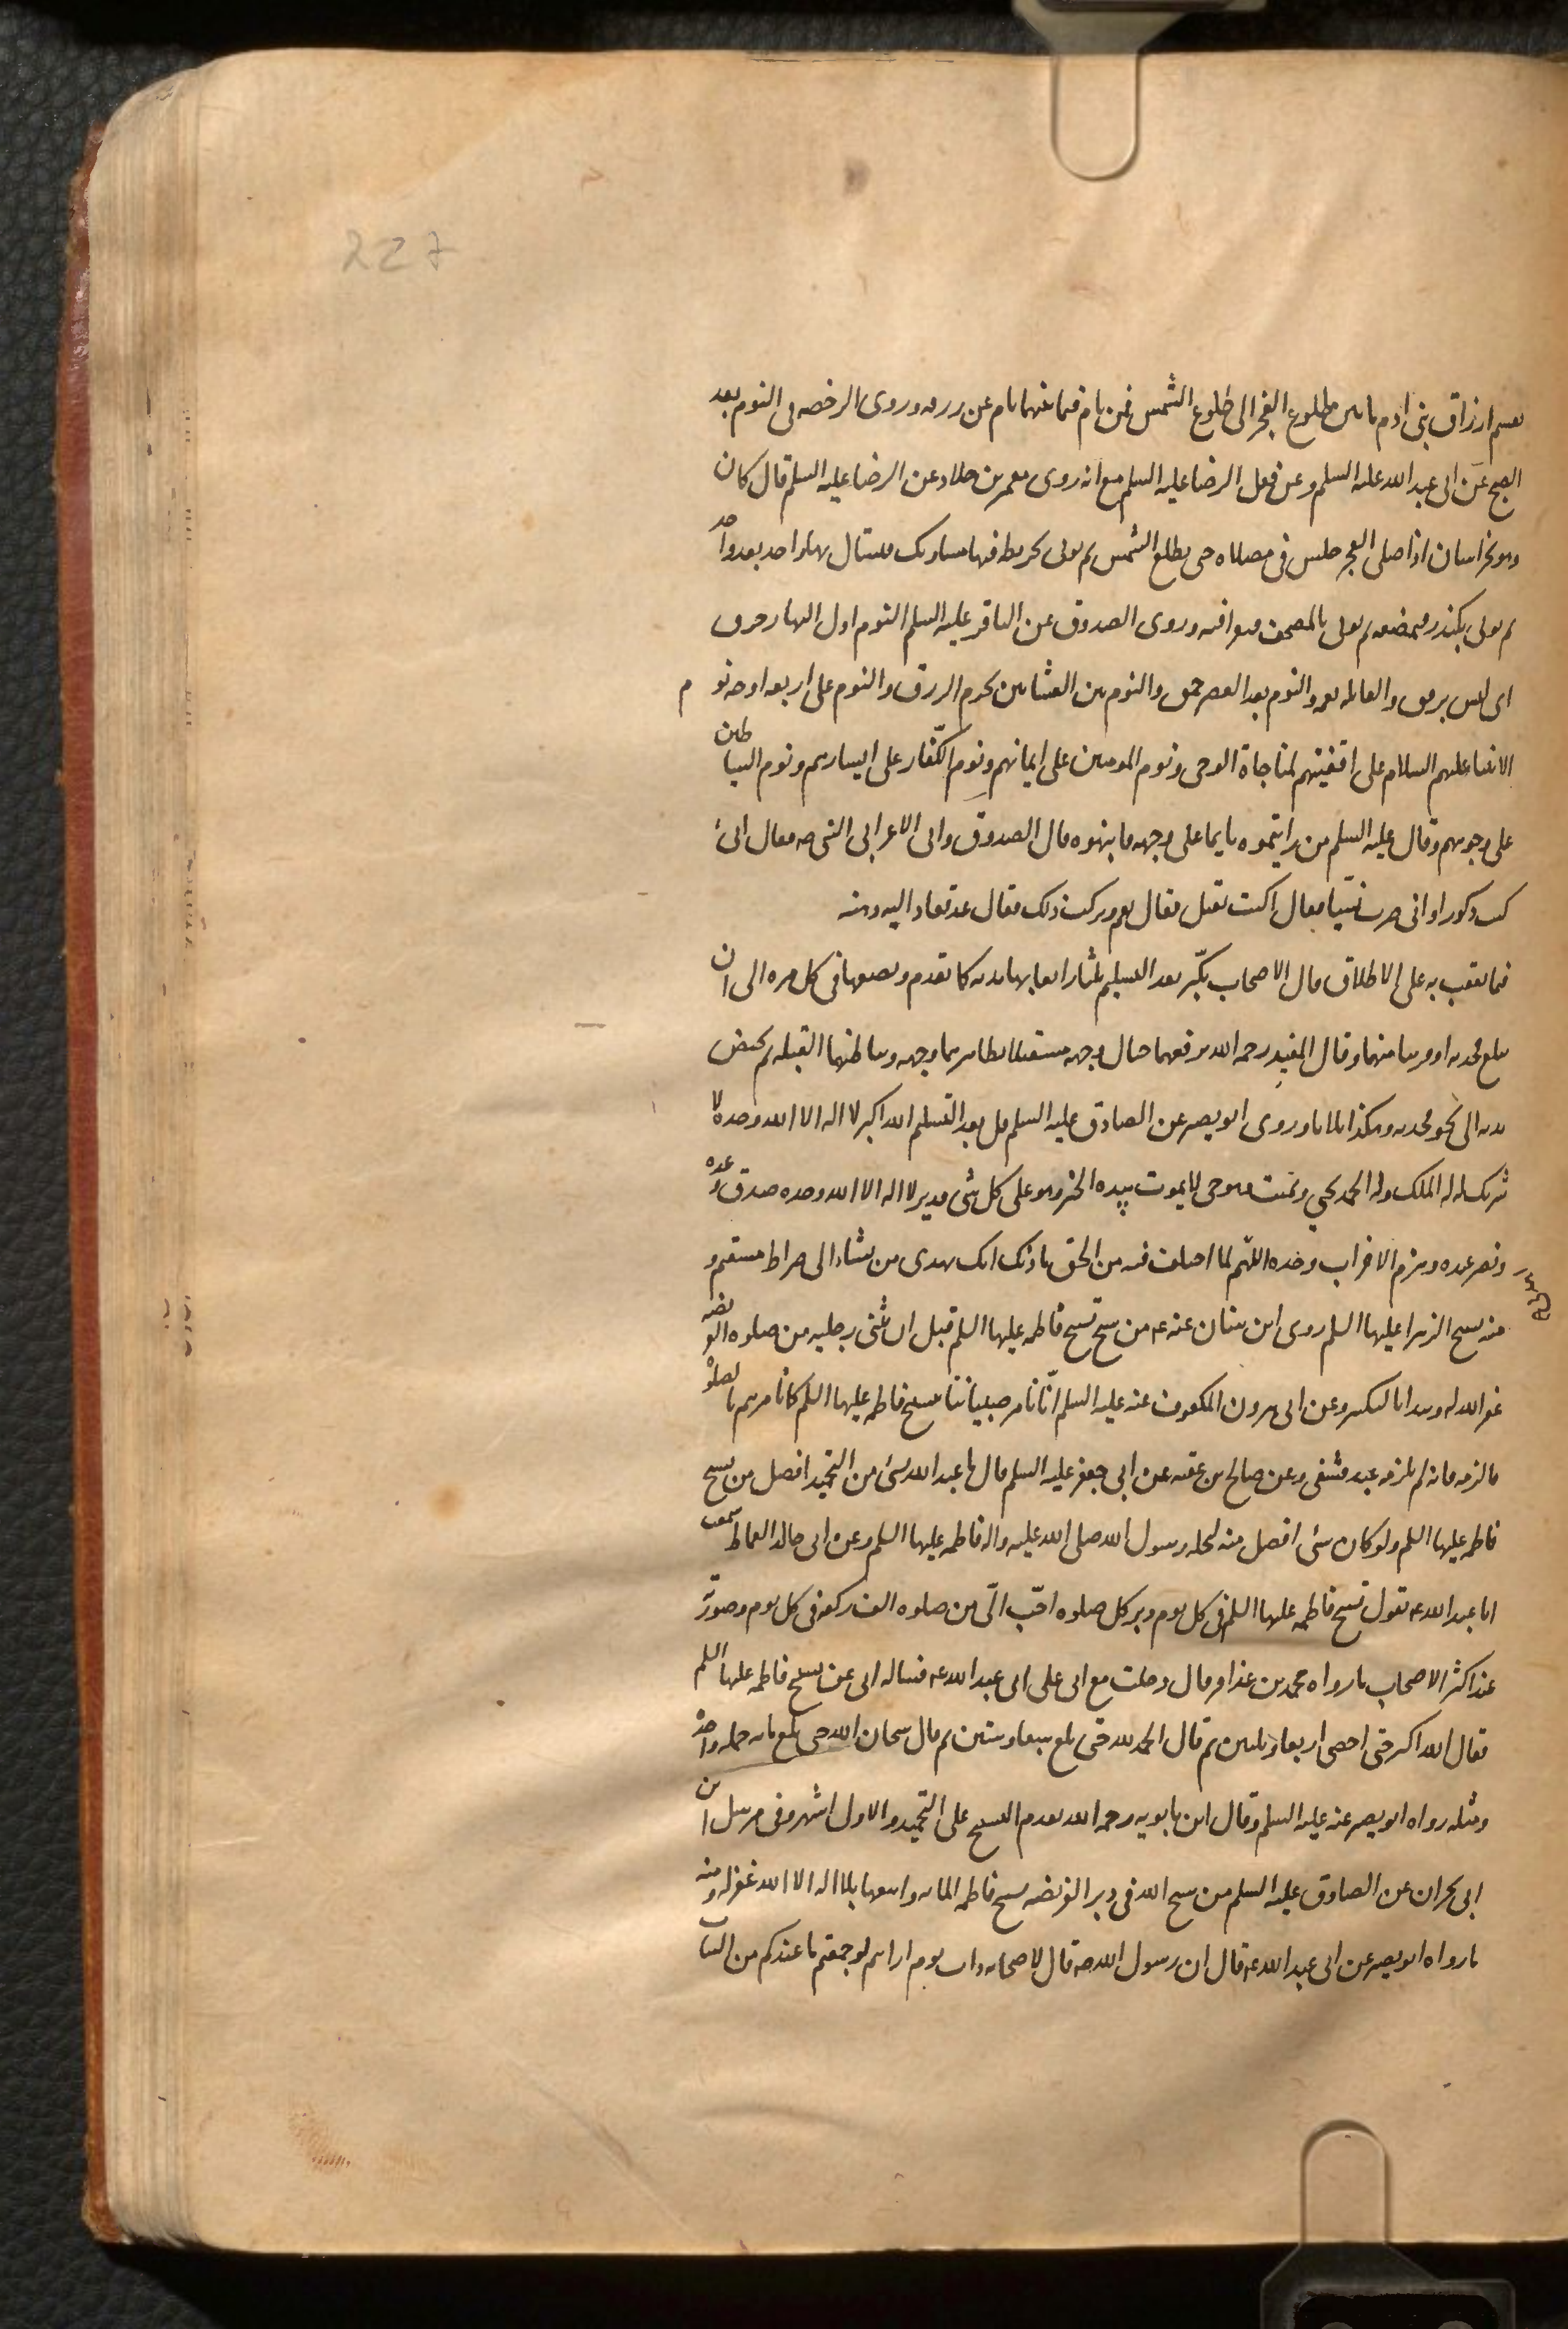 227
يقسم ارزاق بنى ادم ما بين طلوع الفجر الى طلوع الشمس فمن نام فيما بينهما نام عن رزقه وروى الرخصه فى النوم بعد
الصبح عن ابى عبد الله عليه السلم وعن فعل الرضا عليه السلم مع انه روى معمر بن خلاد عن الرضا عليه السلم قال كان
وهو بخراسان اذا صلى الفجر جلس فى مصلاه حتى يطلع الشمس ثم يوتى بخريطه فيها مساويك فيستاك بها واحدا بعد واحد
ثم يوتى بكندر فيمضغه ثم يوتى بالمصحف فيقرا فيه وروى الصدوق عن الباقر عليه السلم النوم اول النهار خرق
اى ليس برفق والقايله نعمه والنوم بعد العصر حمق والنوم بين العشاءين يحرم الرزق والنوم على اربعه اوجه نوم
الانبياء عليهم السلام على اقفيتهم لمناجاة الوحى ونوم المومنين على ايمانهم ونوم الكفّار على ايسارهم ونوم الشياطين
على وجوههم وقال عليه السلم من رايتموه نايما على وجهه فانبهوه قال الصدوق واتى الاعرابى النبى صه فقال انى
كنت ذكورا وانى صرت نسّيا فقال اكنت تقيل فقال نعم وتركت ذلك فقال عد فعاد اليه ذهنه
فيما يعقب به على الاطلاق قال الاصحاب يكبّر بعد التسليم ثلثا رافعا بها يديه كما تقدم ويضعهما فى كل مره الى ان
يبلغ فخذيه او قريبا منهما وقال المفيد رحمه الله يرفعهما حيال وجهه مستقبلا بظاهرهما وجهه وبباطنهما القبله ثم يخفض
يديه الى نحو فخذيه وهكذا ثلاثا وروى ابو بصير عن الصادق عليه السلم قل بعد التسليم الله اكبر لا اله الا الله وحده لا
شريك له له الملك وله الحمد يحيي ويميت وهو حى لا يموت بيده الخير وهو على كل شى قدير لا اله الا الله وحده صدق وعده
ونصر عبده وهزم الاحزاب وحده اللهم اهدنى لما اختلف فيه من الحق باذنك انك تهدى من تشاء الى صراط مستقيم و
منه تسبيح الزهرا عليها السلم روى ابن سنان عنه عه من سبّح تسبيح فاطمه عليها السلم قبل ان يثنى رجليه من صلوه الفريضه
غفر الله له ويبدا بالتكبير وعن ابى هرون المكفوف عنه عليه السلم انّا نامر صبياننا بتسبيح فاطمه عليها السلم كما نامرهم بالصلوة
فالزمه فانه لم يلزمه عبد فشقى وعن صالح بن عقبه عن ابى جعفر عليه السلم قال ما عبد الله بشى من التحميد افضل من تسبيح
فاطمه عليها السلم ولو كان شى افضل منه لنحله رسول الله صلى الله عليه واله فاطمه عليها السلم وعن ابى خالد القماط سمعت
ابا عبد الله عه يقول تسبيح فاطمه عليها السلم فى كل يوم دبر كل صلوه احبّ الىّ من صلوه الف ركعه فى كل يوم وصورته
عند اكثر الاصحاب ما رواه محمد بن عذافر قال دخلت مع ابى على ابى عبد الله عه فساله ابى عن تسبيح فاطمه عليها السلم
فقال الله اكبر حتى احصى اربعا وثلثين ثم قال الحمد لله حتى بلغ سبعا وستين ثم قال سبحان الله حتى بلغ مائه جمله واحدة
ومثله رواه ابو بصير عنه عليه السلم وقال ابن بابويه رحمه الله يقدم التسبيح على التحميد والاول اشهر وفى مرسل ابن
ابى نجران عن الصادق عليه السلم من سبح الله فى دبر الفريضه تسبيح فاطمه المائه واتبعها بلا اله الا الله غفر له ومنه
ما رواه ابو بصير عن ابى عبد الله عه قال ان رسول الله صه قال لاصحابه ذات يوم ارايتم لو جمعتم ما عندكم من الثياب